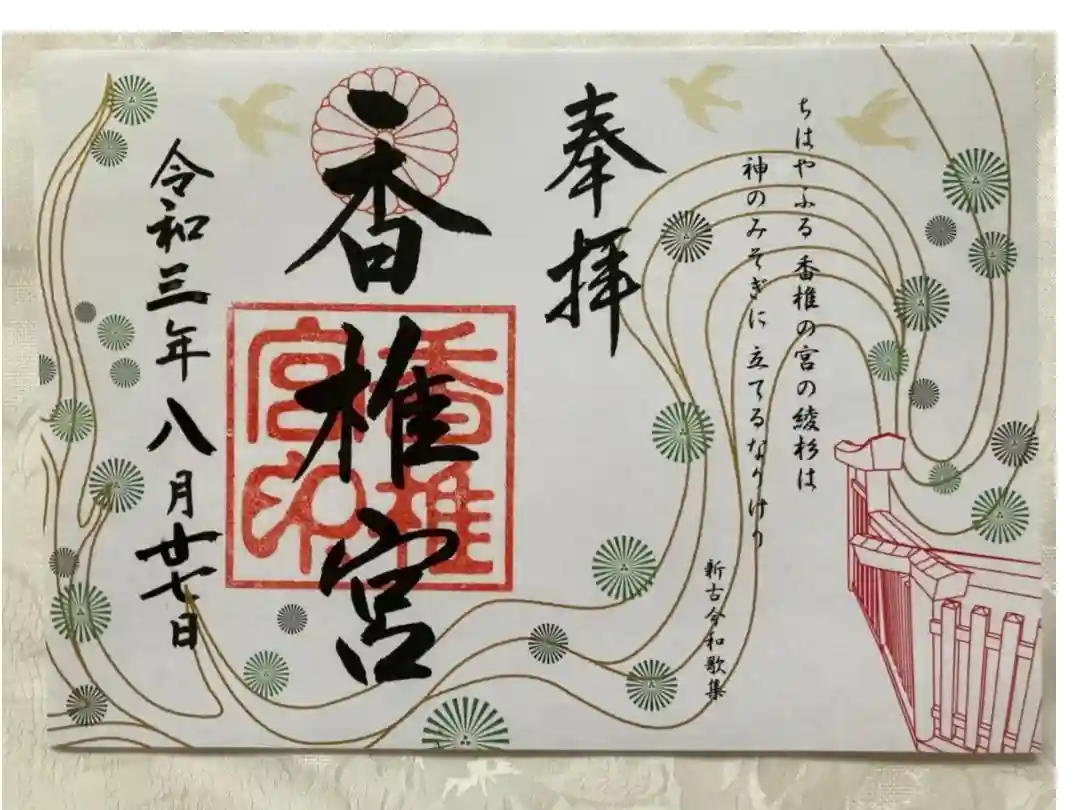 ちはやふる香椎の宮の綾杉は
神のみそぎに立てるなりけり
新古今和歌集
奉拝
香椎宮
香椎
宮印
令和三年八月廿七日